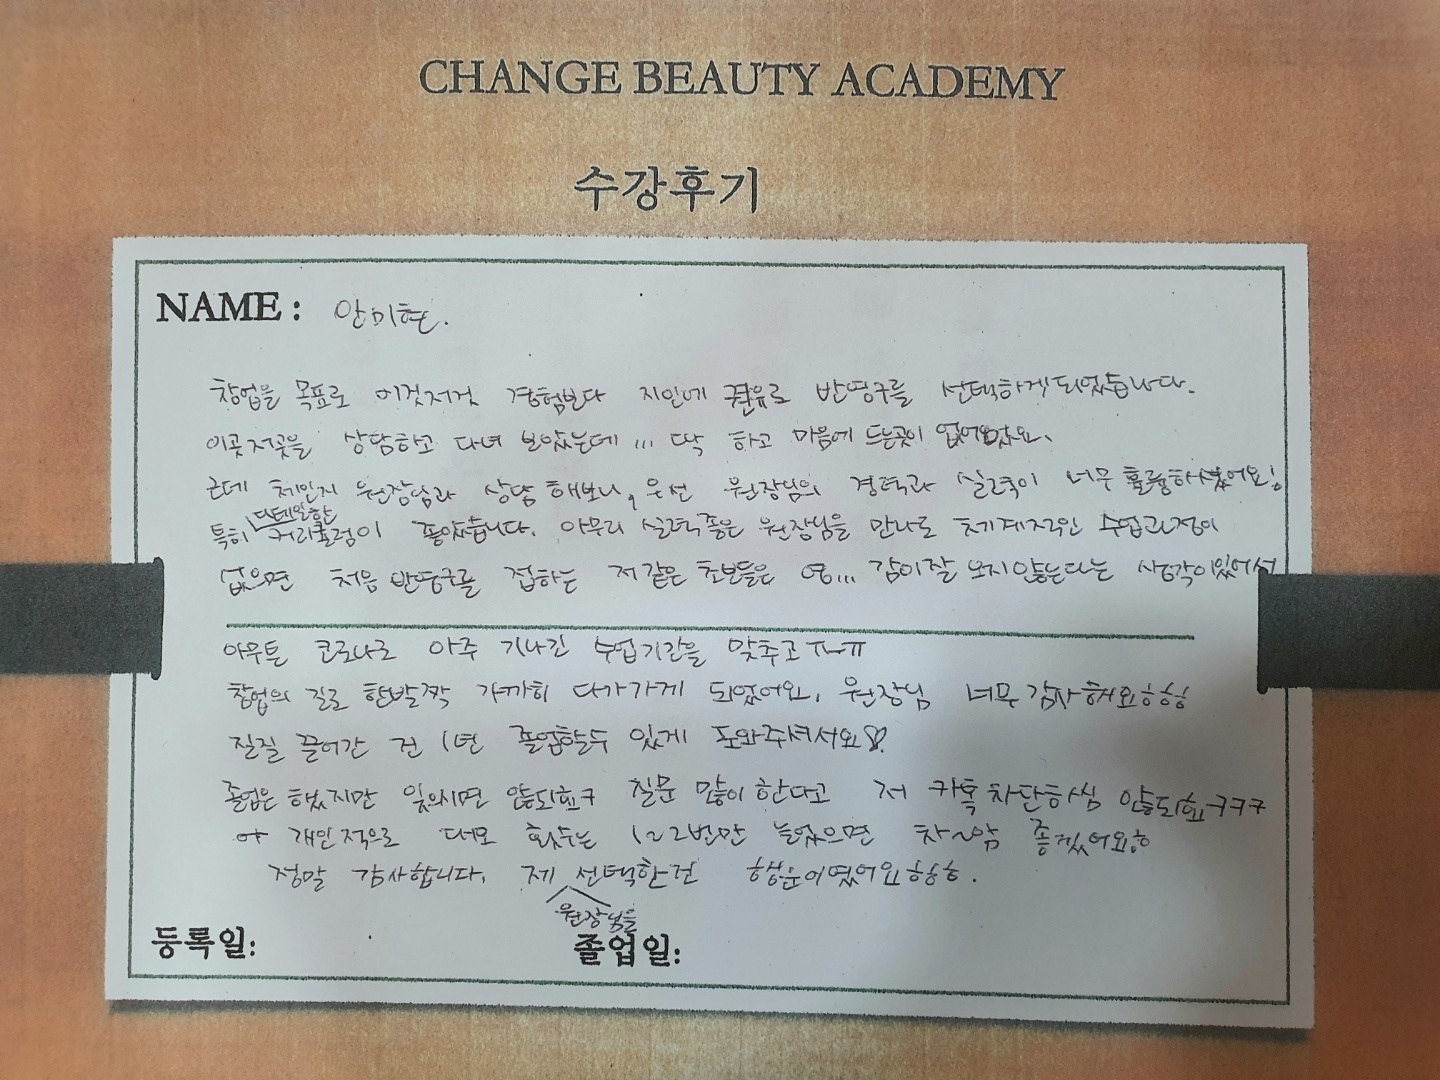 CHANGE BEAUTY ACADEMY
수강후기
NAME : 안미현.
창업을 목표로 이것저것 경험보다 지인에 권유로 반영구를 선택하게되었습니다.
이곳저곳을 상담하고 다녀 보았는데... 딱 하고 마음에 드는곳이 없어요.
근데 체인지 원장님과 상담 해보니, 우선 원장님의 경력과 실력이 너무 훌륭하셨어요!
특히 디테일한 커리큘럼이 좋았습니다. 아무리 실력좋은 원장님을 만나도 체계적인 수업과정이
없으면 처음 반영구를 접하는 저같은 초보들은 영... 감이잘 오지않는다는 생각이있어서
아무튼 코로나로 아주 기나긴 수업기간을 맞추고 ㅠㅠ
창업의 길로 한발짝 가까히 다가가게 되었어요. 원장님 너무감사해요ㅎㅎㅎ
질질 끌어간 건 1년 졸업할수 있게 도와주셔서요♡.
졸업은 했지만 잊으시면 않되효ㅋ 질문 많이 한다고 저 카톡차단하심 않되효ㅋㅋㅋ
아 개인적으로 데모 횟수는 1~2번만 늘었으면 차~암 좋겠어요ㅎ
정말 감사합니다. 제 원장님을 선택한건 행운이였어요ㅎㅎㅎ.
등록일: 졸업일: